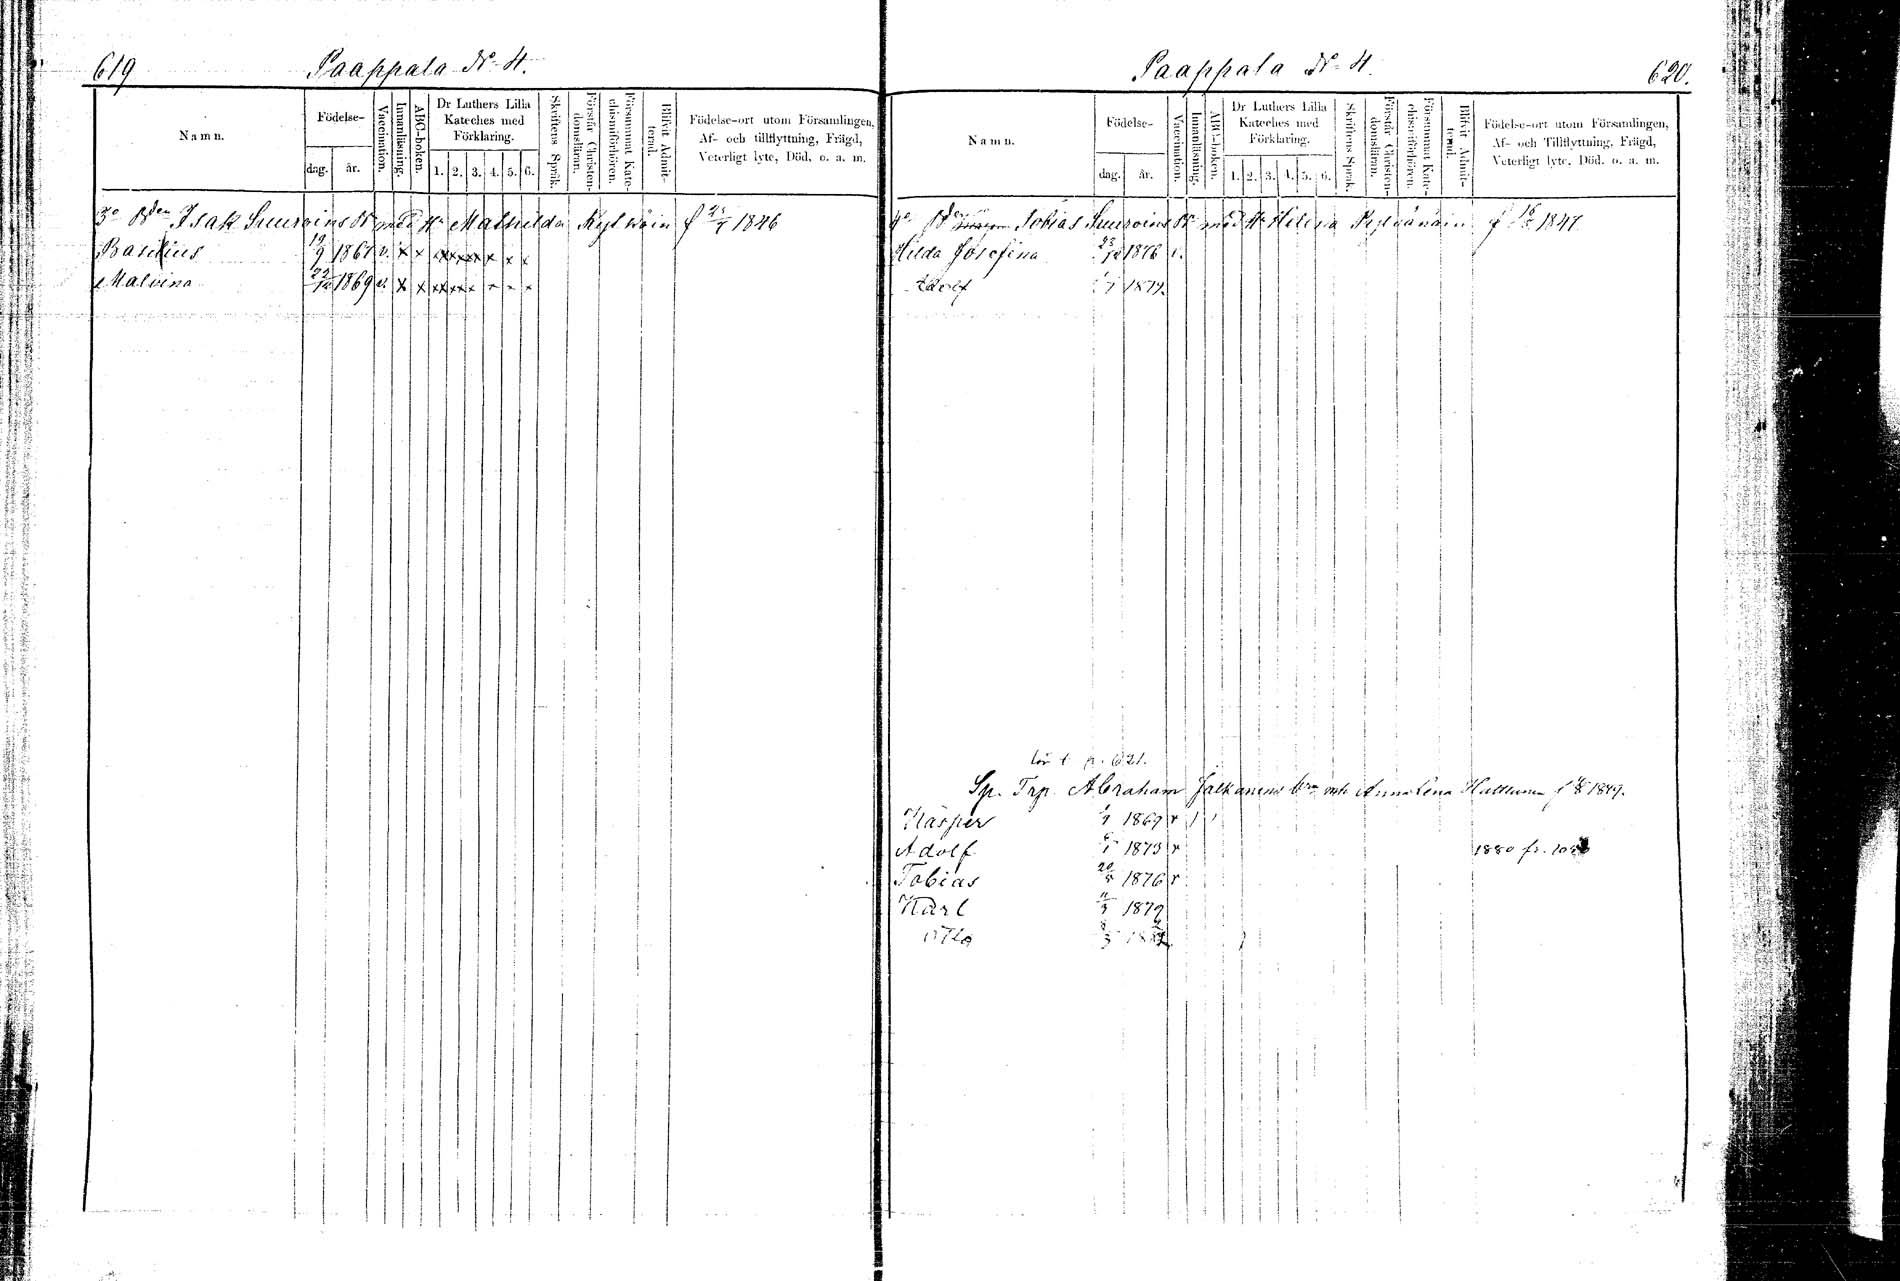 619
Paappala No 4.
Namn.
Födelse-
dag.
år.
Vaccination.
Innanläsning.
ABC-boken.
Dr Luthers Lilla
Kateches med
Förklaring.
1. 2. 3. 4. 5. 6.
Skriftens Språk.
Förstår Christen-
domsläran.
Försummat Kate-
chismiförhören.
Blifvit Admit-
terad.
Födelse-ort utom Församlingen,
Af- och tillflyttning, Frägd,
Veterligt lyte, Död. o. a. m.
3o Bden Isak Suuroins Br med Hu Mathilda f 1846
Basilius 19/9 1867 v. x x xx xx x x x x
Malvina 22/12 1869 v. x x xx xx x x x
Paappala No 4.
620.
Namn.
Födelse-
dag.
år.
Vaccination.
Innanläsning.
ABC-boken.
Dr Luthers Lilla
Kateches med
Förklaring.
1. 2. 3. 4. 5. 6.
Skriftens Språk.
Förstår Christen-
domsläran.
Försummat Kate-
chismiförhören.
Blifvit Admit-
terad.
Födelse-ort utom Församlingen,
Af- och Tillflyttning, Frägd,
Veterligt lyte, Död. o. a. m.
4o Bden Tobias Suuroins Br med Hu Helena f 1847
Hilda Josefina 23/12 1876 v.
Adolf 1/7 1879
p. 621.
Sp. Trp. Abraham Jalkanens Anna Lena f 1849.
Kasper 1869 r
Adolf 1873 r 1880 fr.
Tobias 1876 r
Karl 1879
Otto